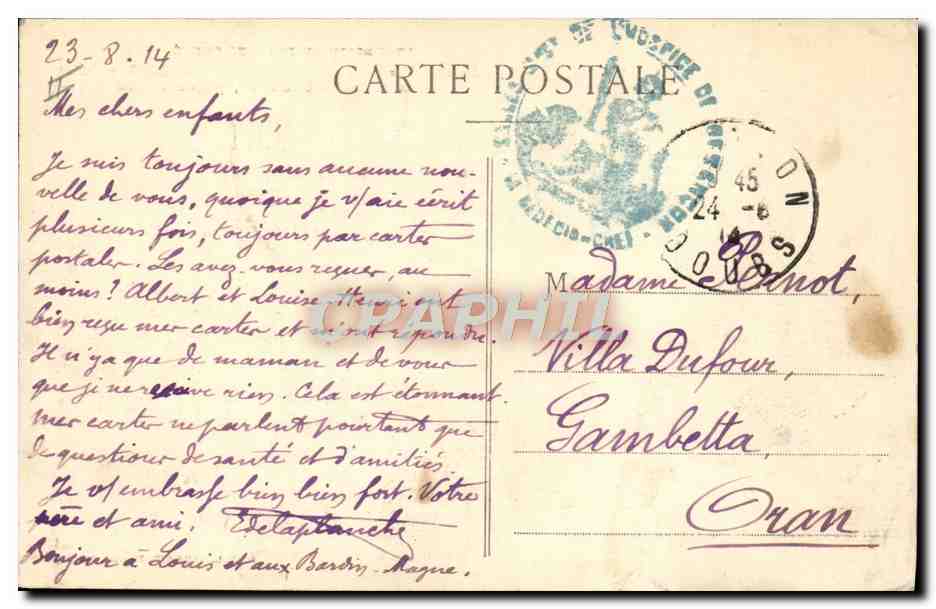 23-8.14
II
CARTE POSTALE
Mes chers enfants,
Je suis toujours sans aucune nou-
velle de vous, quoique je v/ aie écrit
plusieurs fois, toujours par cartes
postales. Les avez-vous reçues, au
moins? Albert et Louise, Henri ont
bien reçu mes cartes et m'ont répondu.
Il n'y a que de maman et de vous
que je ne reçoive rien. Cela est étonnant
mes cartes ne parlent pourtant que
de questions de santé et d'amitiés.
Je v/ embrasse bien bien fort. Votre
père et ami. Edelaplanche
Bonjour à Louis et aux Bardin-Magne.
Madame
Villa Dufour,
Gambetta,
Oran
DE L'HOSPICE DE
MÉDECIN-CHEF
45
24 -8
14
DOUBS
CRAPHIL